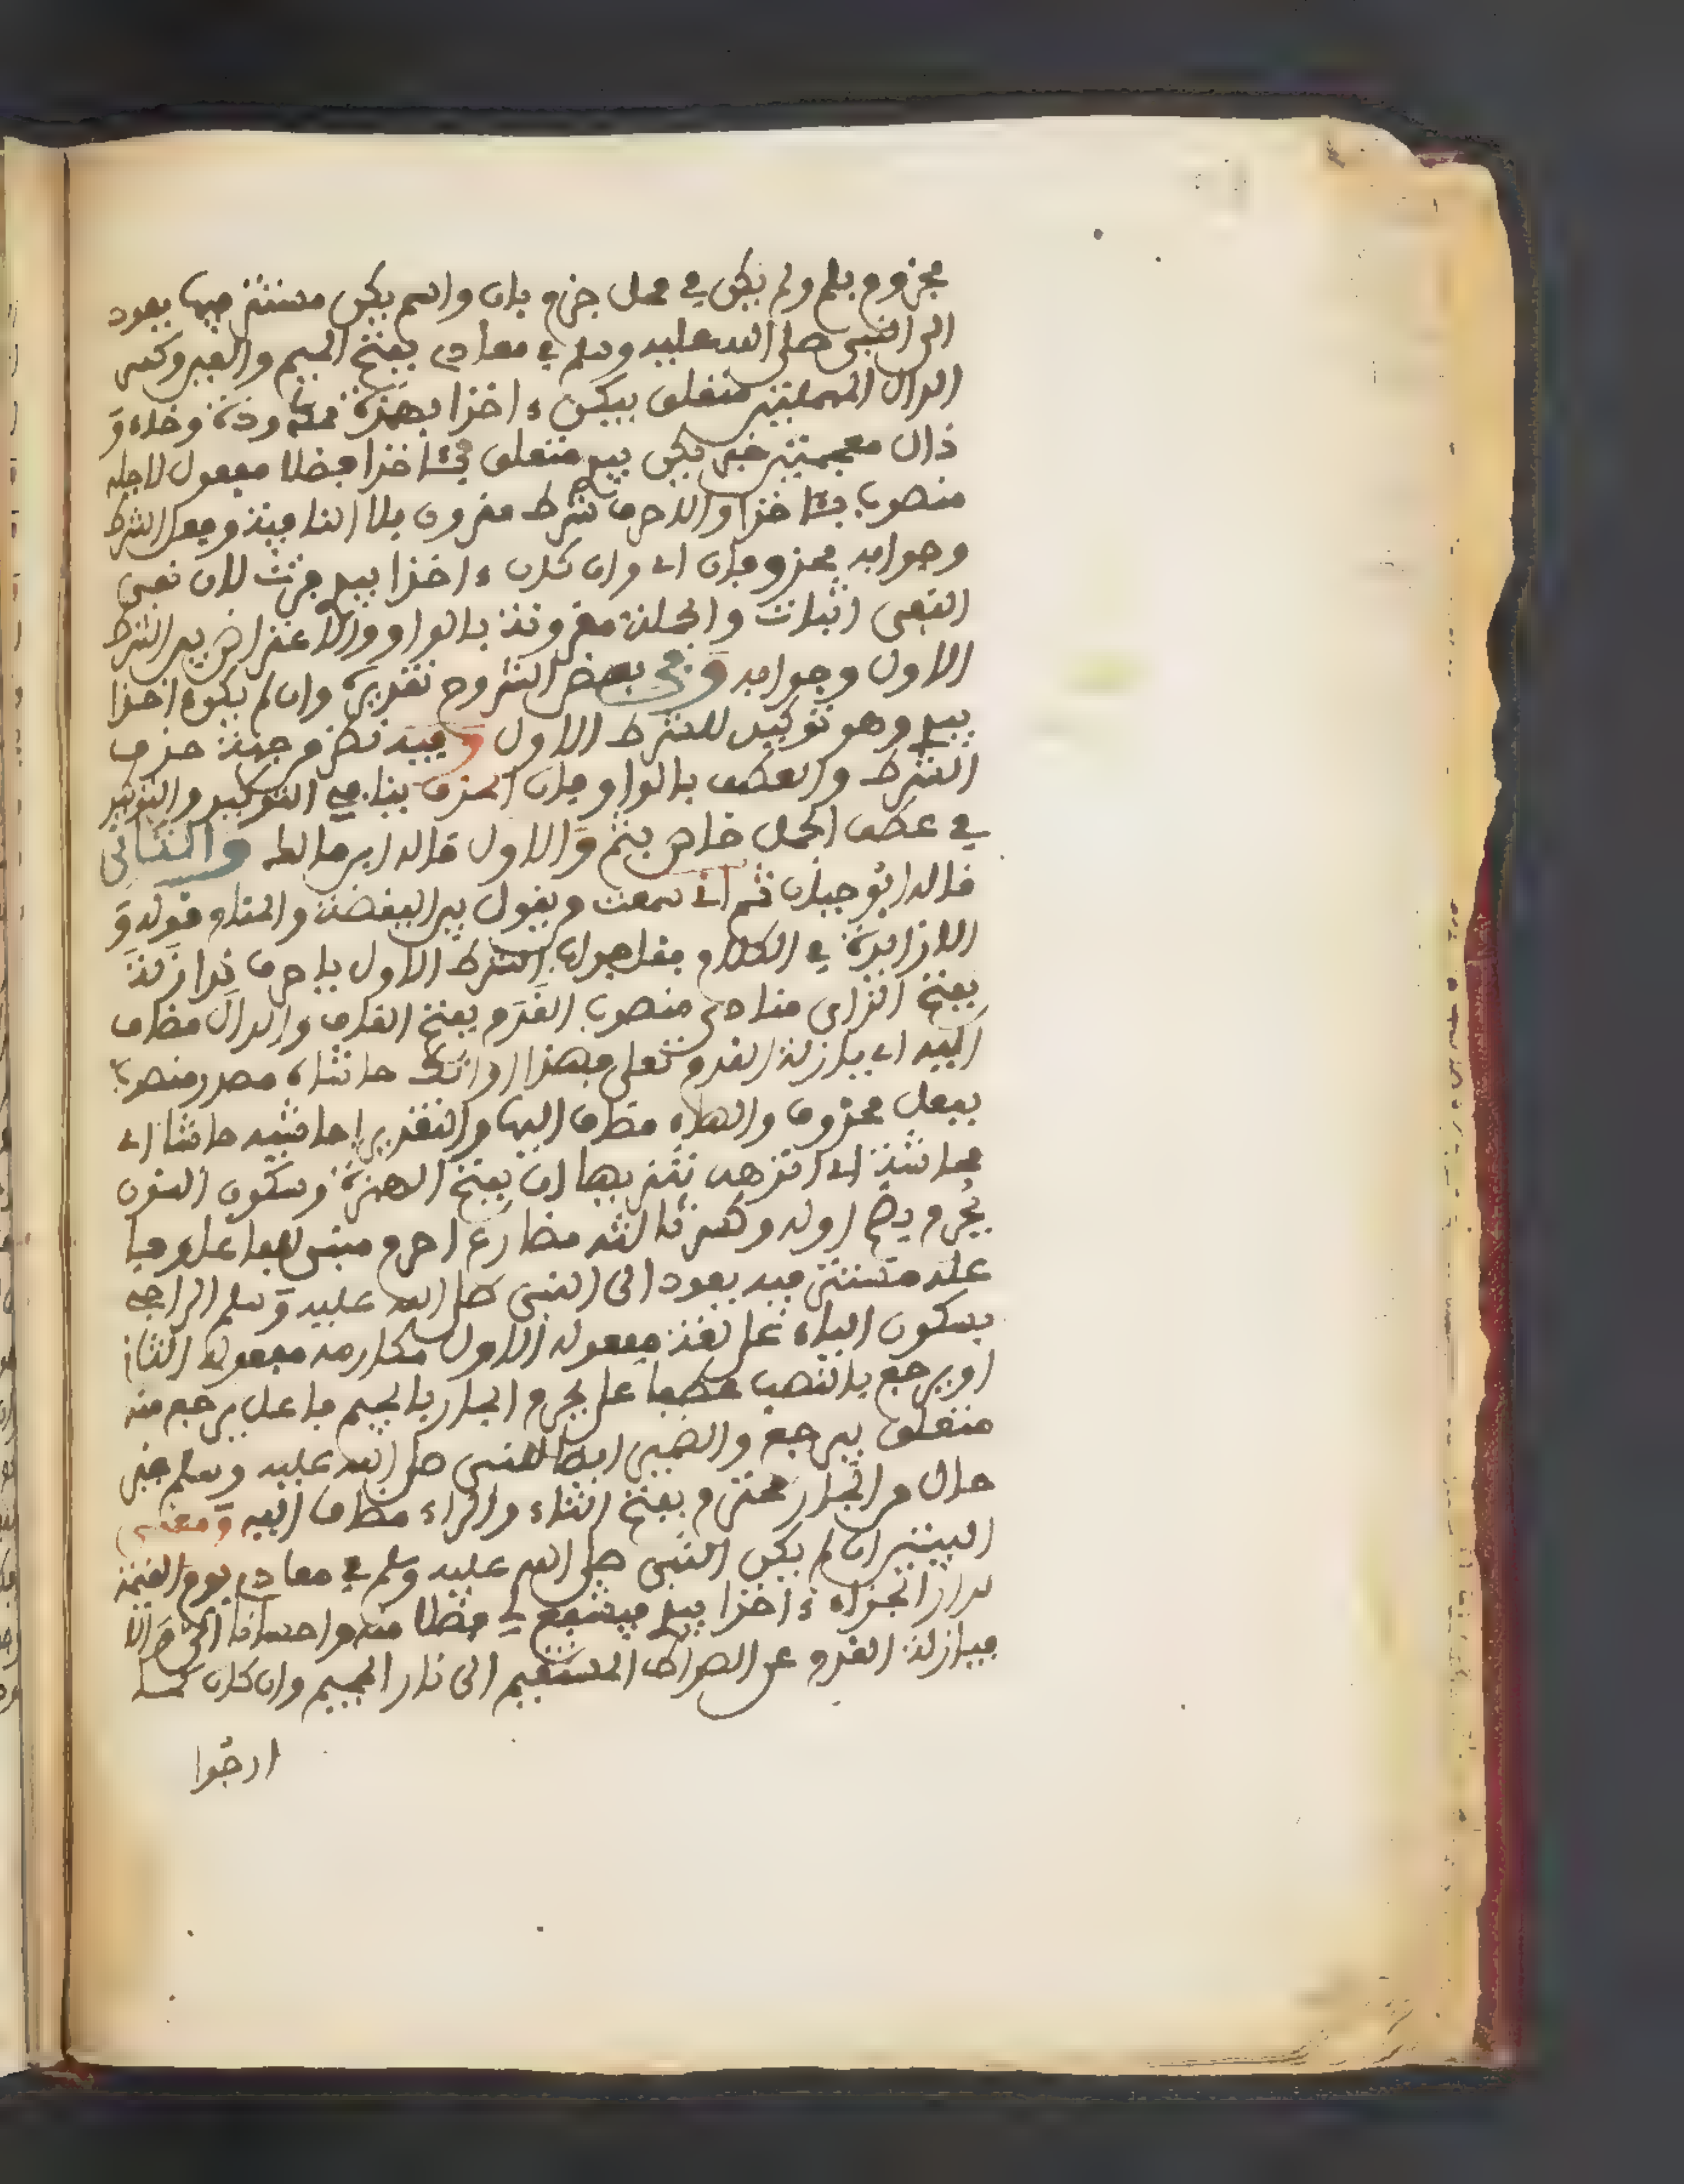 مجزوم بلم ولم يكن في محل جزم بان واسم يكن مستتر فيها يعود
الى النبي صلى الله عليه وسلم في معادي بفتح الميم والعين وكسر
الدال المهملتين متعلق بيكن ءاخذا بهمزة ممدودة وخاء و
ذال معجمتين خبر يكن بيدي متعلق بئاخذا فضلا مفعول لاجله
منصوب بئاخذا والا حرف شرط مقرون بلا النافية وفعل الشرط
وجوابه محذوفان اي وان كان ءاخذا بيدي فزت لان نفي
النفي اثبات والجملة مقرونة بالواو والاعتراض بين الشرط
الاول وجوابه وفي بعض الشروح تقديره وان لم يكن ءاخذا
بيدي وهو توكيد للشرط الاول وفيه نظر من جهة حذف
الشرط والعطف بالواو فان الحذف ينافي التوكيد والتوكيد
في عطف الجمل خاص بثم والاول قاله ابن مالك والثاني
قاله ابو حيان ثم اني سمعت من يقول بين اليقظة والمنام قوله و
الا زايدة في الكلام فقل جواب الشرط الاول يا حرف ندا زلة
بفتح الزاي منادى منصوب القدم بفتح القاف والدال مضاف
اليه اي يا زلة القدم تعالي فهذا اوانك حاشاه مصدر منصوب
بفعل محذوف والهاء مضاف اليها والتقدير احاشيه حاشا اي
محاشاة اي انزهه تنزيها ان بفتح الهمزة وسكون النون
يحرم بضم اوله وكسر ثالثه مضارع احرم مبني للفاعل وفا
عله مستتر فيه يعود الى النبي صلى الله عليه وسلم الراجي
بسكون الياء على لغة مفعوله الاول مكارمه مفعوله الثاني
او يرجع بالنصب عطفا على يحرم الجار بالجيم فاعل يرجع منه
متعلق بيرجع والضمير ايضا للنبي صلى الله عليه وسلم غير
حال من الجار محترم بفتح التاء والراء مضاف اليه ومعنى
البيتين ان لم يكن النبي صلى الله عليه وسلم في معادي يوم القيمة
دار الجزاء ءاخذا بيدي فيشفع لي فضلا منه واحسانا الي والا
فيا زلة القدم عن الصراط المستقيم الى نار الجحيم وان كان كما
ارجوا